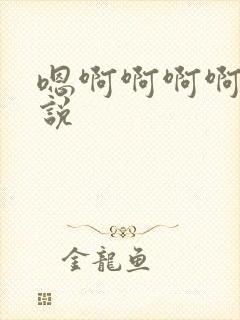 嗯啊啊啊啊
說
金龍魚